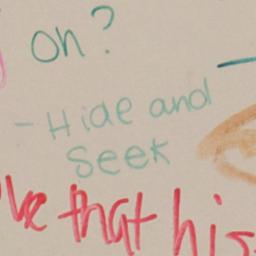 on?
- Hide and
Seek
that his